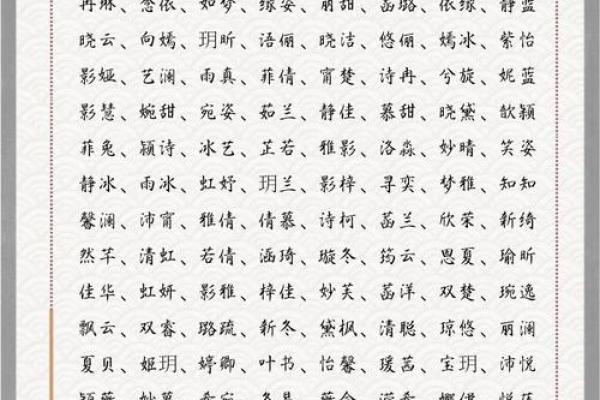 冉琳、念依、如梦、缘姿、丽甜、菡璐、依缘、静蓝
晓云、向嫣、玥昕、语俪、晓洁、悠俪、嫣冰、紫怡
影娅、艺澜、雨真、菲倩、甯楚、诗冉、兮旋、妮蓝
影慧、婉甜、宛姿、茹兰、静佳、慕甜、晓黛、歆颖
菲兔、颖诗、冰艺、芷若、雅影、洛淼、妙晴、笑姿
静冰、雨冰、虹妤、玥兰、影梓、寻奕、梦雅、知知
馨澜、沛甯、雅倩、倩慕、诗柯、菡兰、欣荣、新绮
然芊、清虹、若倩、涵琦、璇冬、筠云、思夏、瑜昕
佳华、虹妍、影雅、梓佳、妙芙、菡洋、双楚、琬逸
飘云、双睿、璐疏、新冬、黛枫、清聪、琼悠、丽澜
夏贝、姬玥、婷卿、叶书、怡馨、瑗茜、宝玥、沛悦